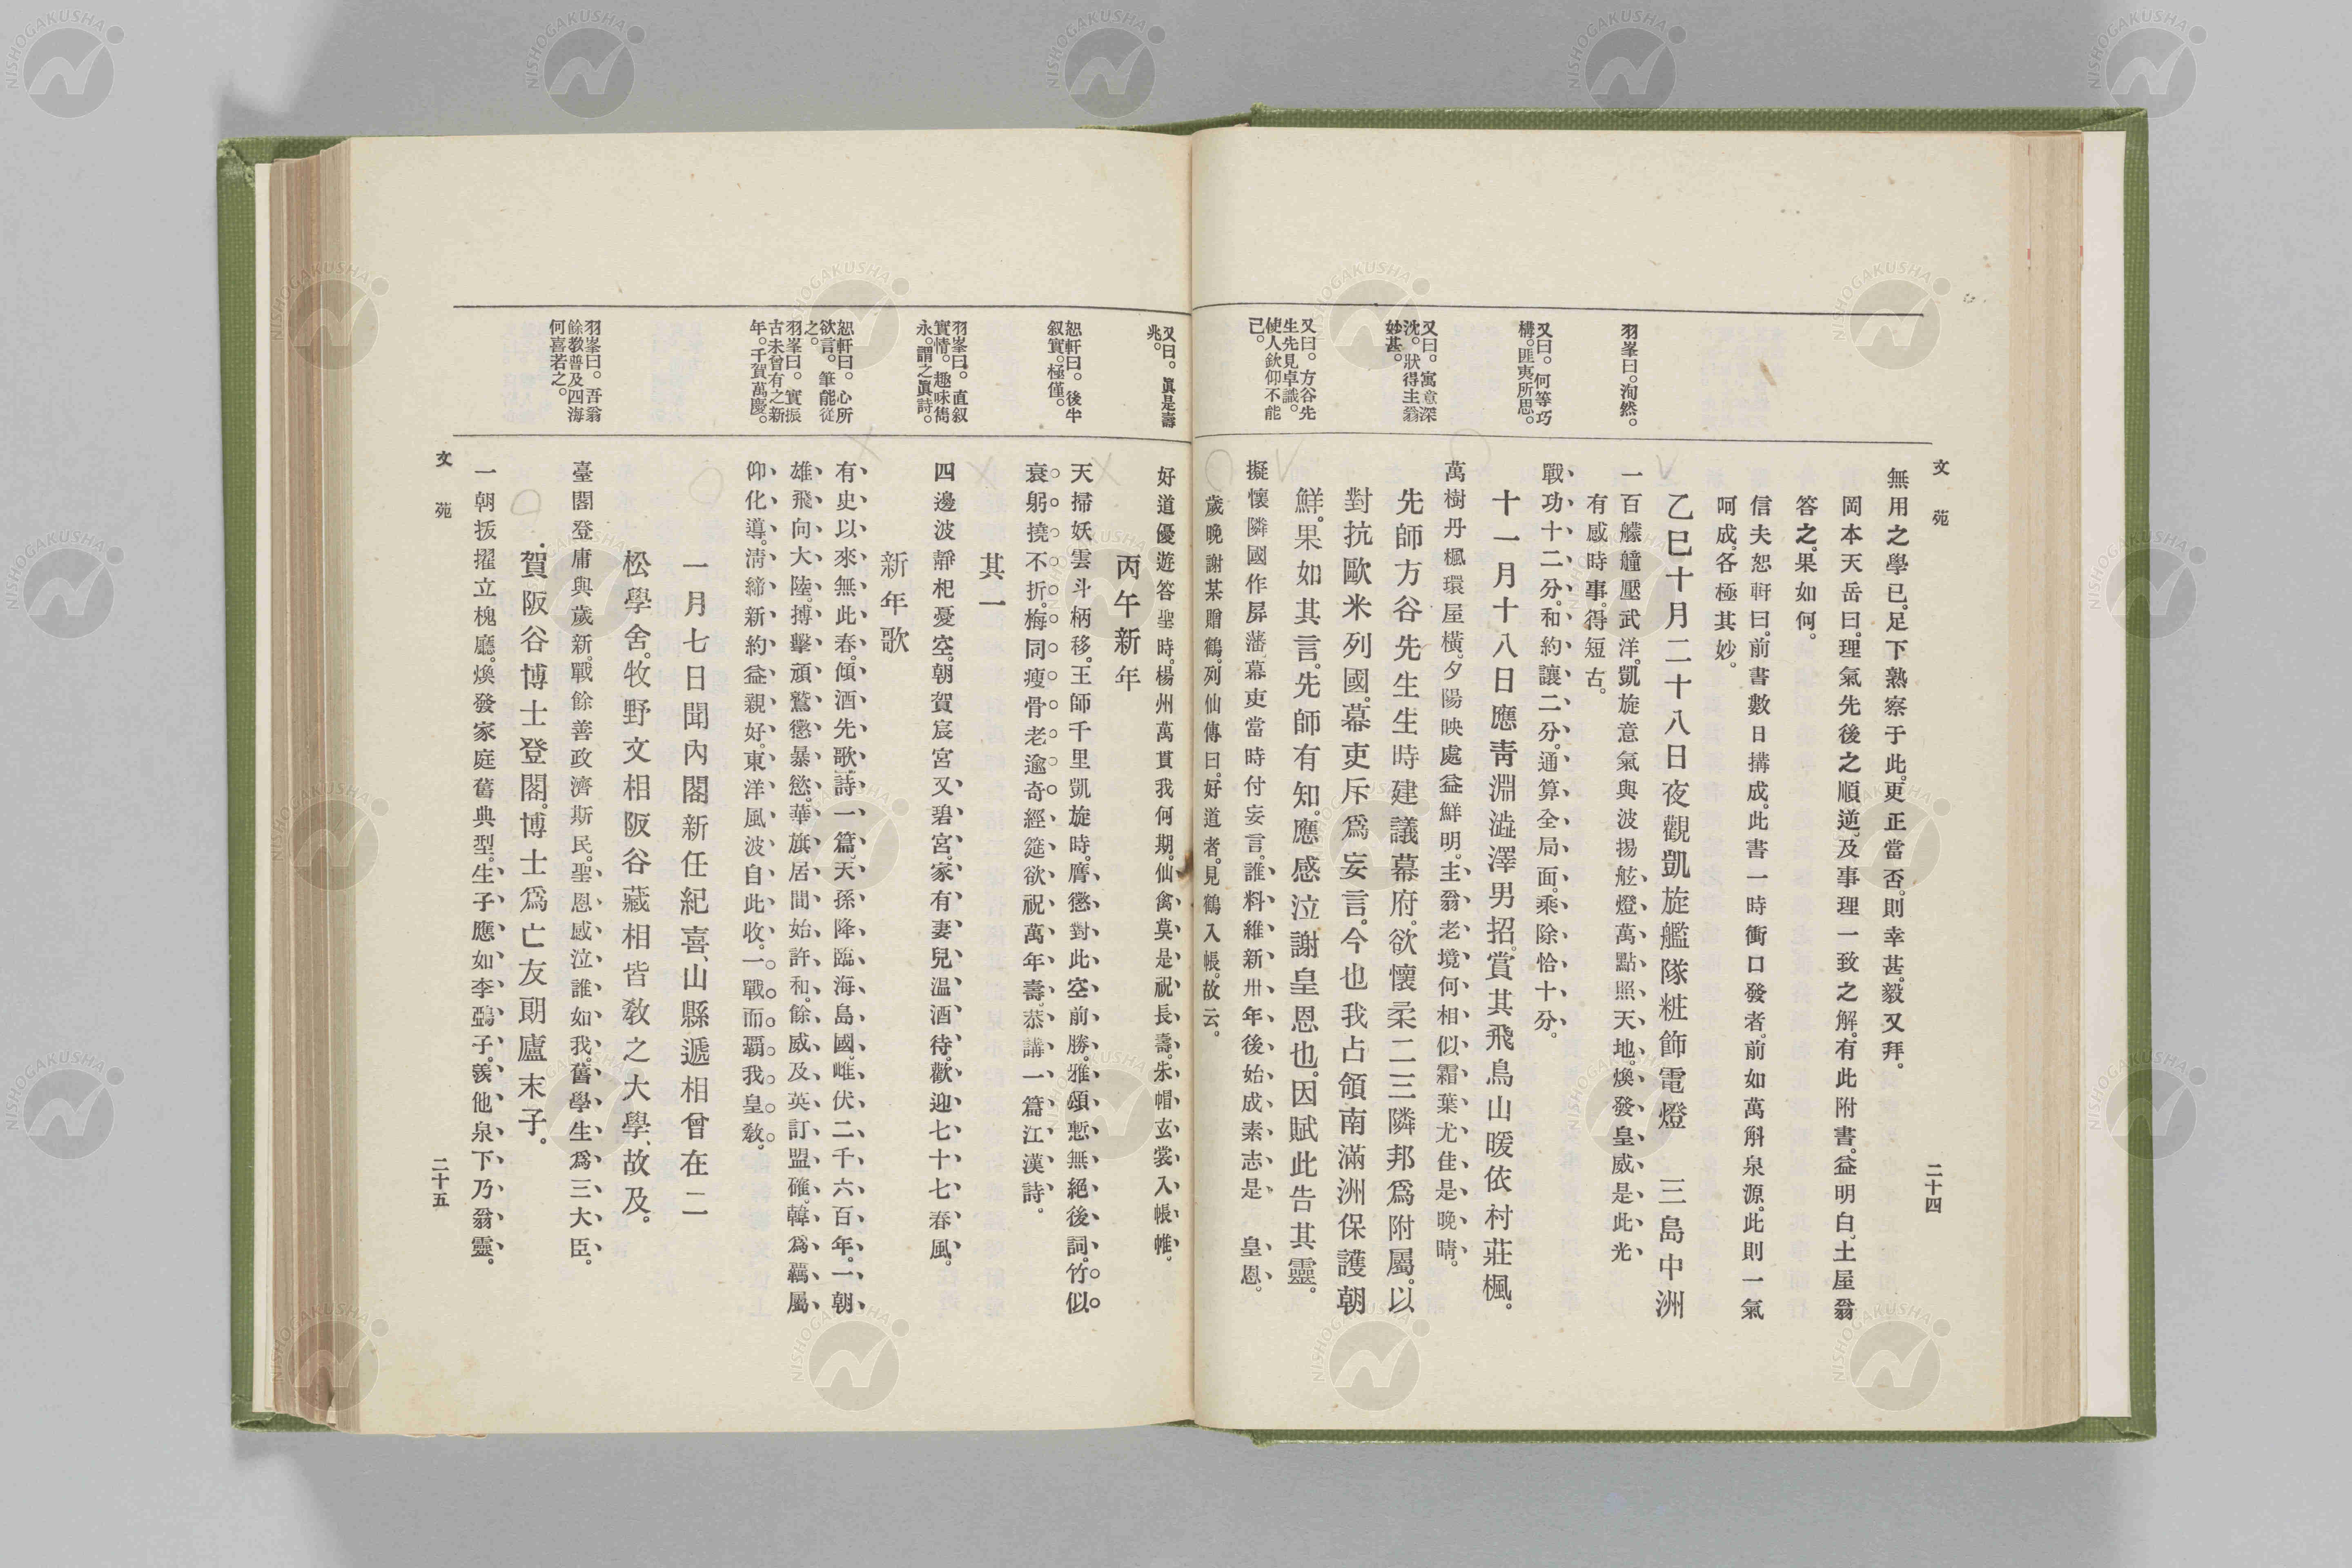 文苑
二十四
羽峯曰。洵然。
又曰。何等巧
構。匪夷所思。
又曰。寓意深
沈。狀得主翁
妙甚。
又曰。方谷先
生先見卓識。
使人欽仰不能
已。
無用之學已。足下熟察于此。更正當否。則幸甚。毅又拜。
岡本天岳曰。理氣先後之順逆。及事理一致之解。有此附書。益明白。土屋翁
答之。果如何。
信夫恕軒曰。前書數日搆成。此書一時衝口發者。前如萬斛泉源。此則一氣
呵成。各極其妙。
乙巳十月二十八日夜觀凱旋艦隊粧飾電燈 三島中洲
一百艨艟壓武洋。凱旋意氣與波揚。舷燈萬點照天地。煥發皇威是此光
有感時事。得短古。
戰功十二分。和約讓二分。通算全局面。乘除恰十分。
十一月十八日應靑淵澁澤男招。賞其飛鳥山曖依村莊楓。
萬樹丹楓環屋橫。夕陽映處益鮮明。主翁老境何相似。霜葉尤佳是晚晴。
先師方谷先生生時建議幕府。欲懷柔二三隣邦爲附屬。以
對抗歐米列國。幕吏斥爲妄言。今也我占領南滿洲保護朝
鮮。果如其言。先師有知。應感泣謝皇恩也。因賦此告其靈。
擬懷隣國作屛藩。幕吏當時付妄言。誰料維新卅年後。始成素志是 皇恩。
歲晚謝某贈鶴。列仙傳曰。好道者。見鶴入帳。故云。
又曰。眞是壽
兆。
恕軒曰。後半
叙實。極僅。
羽峯曰。直叙
實情。趣味雋
永。謂之眞詩。
恕軒曰。心所
欲言。筆能從
之。
羽峯曰。實振
古未曾有之新
年。千賀萬慶。
羽峯曰。吾翁
餘敎普及四海
何喜若之。
好道優遊答聖時。楊州萬貫我何期。仙禽莫是祝長壽。朱帽玄裳入帳帷。
丙午新年
天掃妖雲斗柄移。王師千里凱旋時。膺懲對此空前勝。雅頌慙無絕後詞。竹似
衰躬撓不折。梅同瘦骨老逾奇。經筵欲祝萬年壽。恭講一篇江漢詩。
其一
四邊波靜杞憂空。朝賀宸宮又碧宮。家有妻兒溫酒待。歡迎七十七春風。
新年歌
有史以來無此春。傾酒先歌詩一篇。天孫降臨海島國。雌伏二千六百年。一朝
雄飛向大陸。搏擊頑鷲懲暴慾。華旗居間始許和。餘威及英訂盟確。韓爲羈屬
仰化導。淸締新約益親好。東洋風波自此收。一戰而覇我皇敎。
一月七日聞內閣新任紀喜、山縣遞相曾在二
松學舍。牧野文相阪谷藏相皆敎之大學、故及。
臺閣登庸與歲新。戰餘善政濟斯民。聖恩感泣誰如我。舊學生爲三大臣。
賀阪谷博士登閣。博士爲亡友朗廬末子。
一朝拔擢立槐廳。煥發家庭舊典型。生子應如李鵶子。羨他泉下乃翁靈。
文苑
二十五